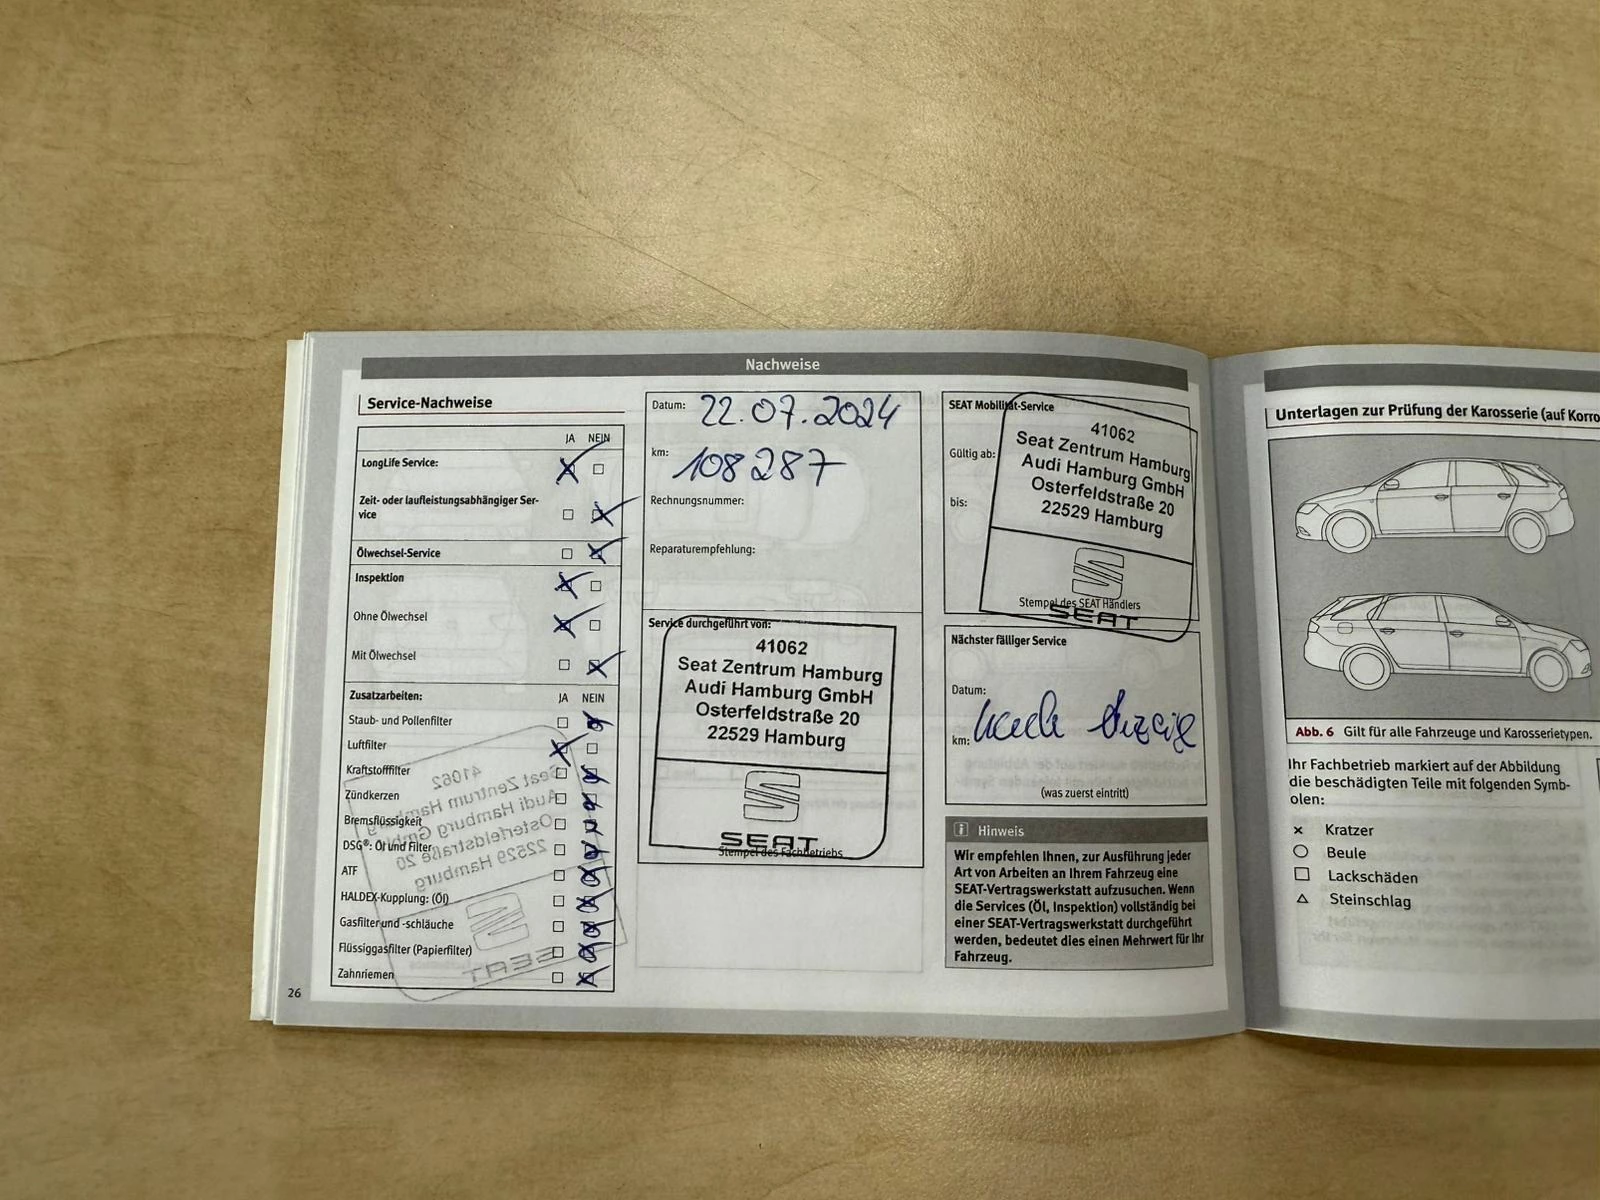 Nachweise
Service-Nachweise
JA NEIN
LongLife Service:
Zeit- oder laufleistungsabhängiger Ser-
vice
Ölwechsel-Service
Inspektion
Ohne Ölwechsel
Mit Ölwechsel
Zusatzarbeiten: JA NEIN
Staub- und Pollenfilter
Luftfilter
Kraftstofffilter
Zündkerzen
Bremsflüssigkeit
DSG®: Öl und Filter
ATF
HALDEX-Kupplung: (Öl)
Gasfilter und -schläuche
Flüssiggasfilter (Papierfilter)
Zahnriemen
41062
Seat Zentrum Hamburg
Audi Hamburg GmbH
Osterfeldstraße 20
22529 Hamburg
SEAT
26
Datum: 22.07.2024
km: 108287
Rechnungsnummer:
Reparaturempfehlung:
Service durchgeführt von:
41062
Seat Zentrum Hamburg
Audi Hamburg GmbH
Osterfeldstraße 20
22529 Hamburg
SEAT
Stempel des Fachbetriebs
SEAT Mobilität-Service
Gültig ab:
bis:
41062
Seat Zentrum Hamburg
Audi Hamburg GmbH
Osterfeldstraße 20
22529 Hamburg
Stempel des SEAT Händlers
SEAT
Nächster fälliger Service
Datum:
km: nach Anzeige
(was zuerst eintritt)
i Hinweis
Wir empfehlen Ihnen, zur Ausführung jeder
Art von Arbeiten an Ihrem Fahrzeug eine
SEAT-Vertragswerkstatt aufzusuchen. Wenn
die Services (Öl, Inspektion) vollständig bei
einer SEAT-Vertragswerkstatt durchgeführt
werden, bedeutet dies einen Mehrwert für Ihr
Fahrzeug.
Unterlagen zur Prüfung der Karosserie (auf Korro
Abb. 6 Gilt für alle Fahrzeuge und Karosserietypen.
Ihr Fachbetrieb markiert auf der Abbildung
die beschädigten Teile mit folgenden Symb-
olen:
Kratzer
Beule
Lackschäden
Steinschlag